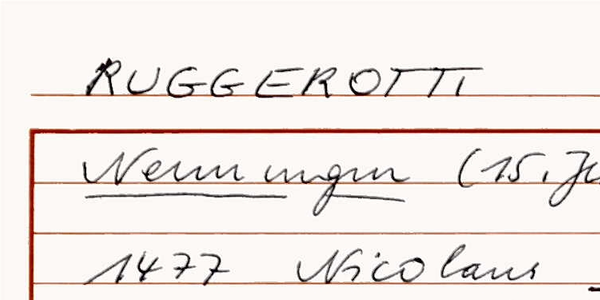 RUGGEROTTI
Nennungen (15. Ju
1477 Nicolaus